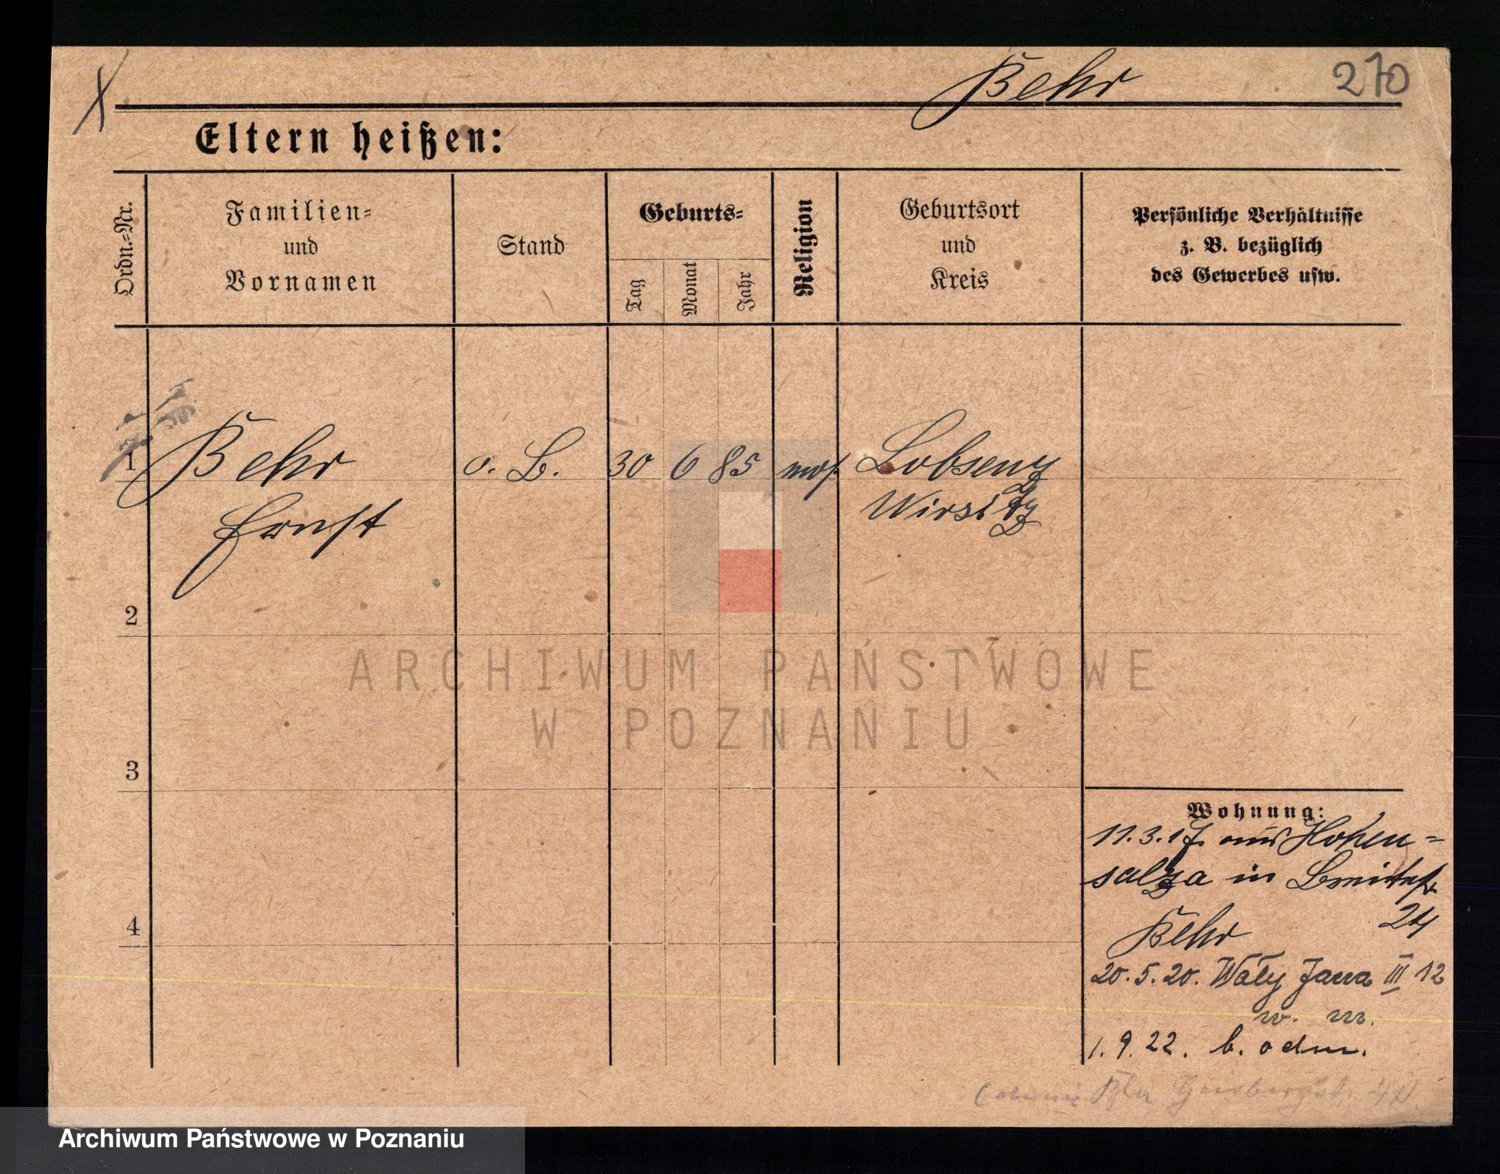 Behr
270
Eltern heißen:
Ordn.-Nr.
Familien-
und
Vornamen
Stand
Geburts-
Tag
Monat
Jahr
Religion
Geburtsort
und
Kreis
Persönliche Verhältnisse
z. B. bezüglich
des Gewerbes usw.
1 Behr o. B. 30 6 85 mos. Lobsens
Ernst Wirsitz
2
3
4
ARCHIWUM PAŃSTWOWE
W POZNANIU
Wohnung:
11.3.17. aus Hohen-
salza in Breitestr
24
Behr
20.5.20. Wały Jana III 12
w. m.
1.9.22. b. odm.
Archiwum Państwowe w Poznaniu